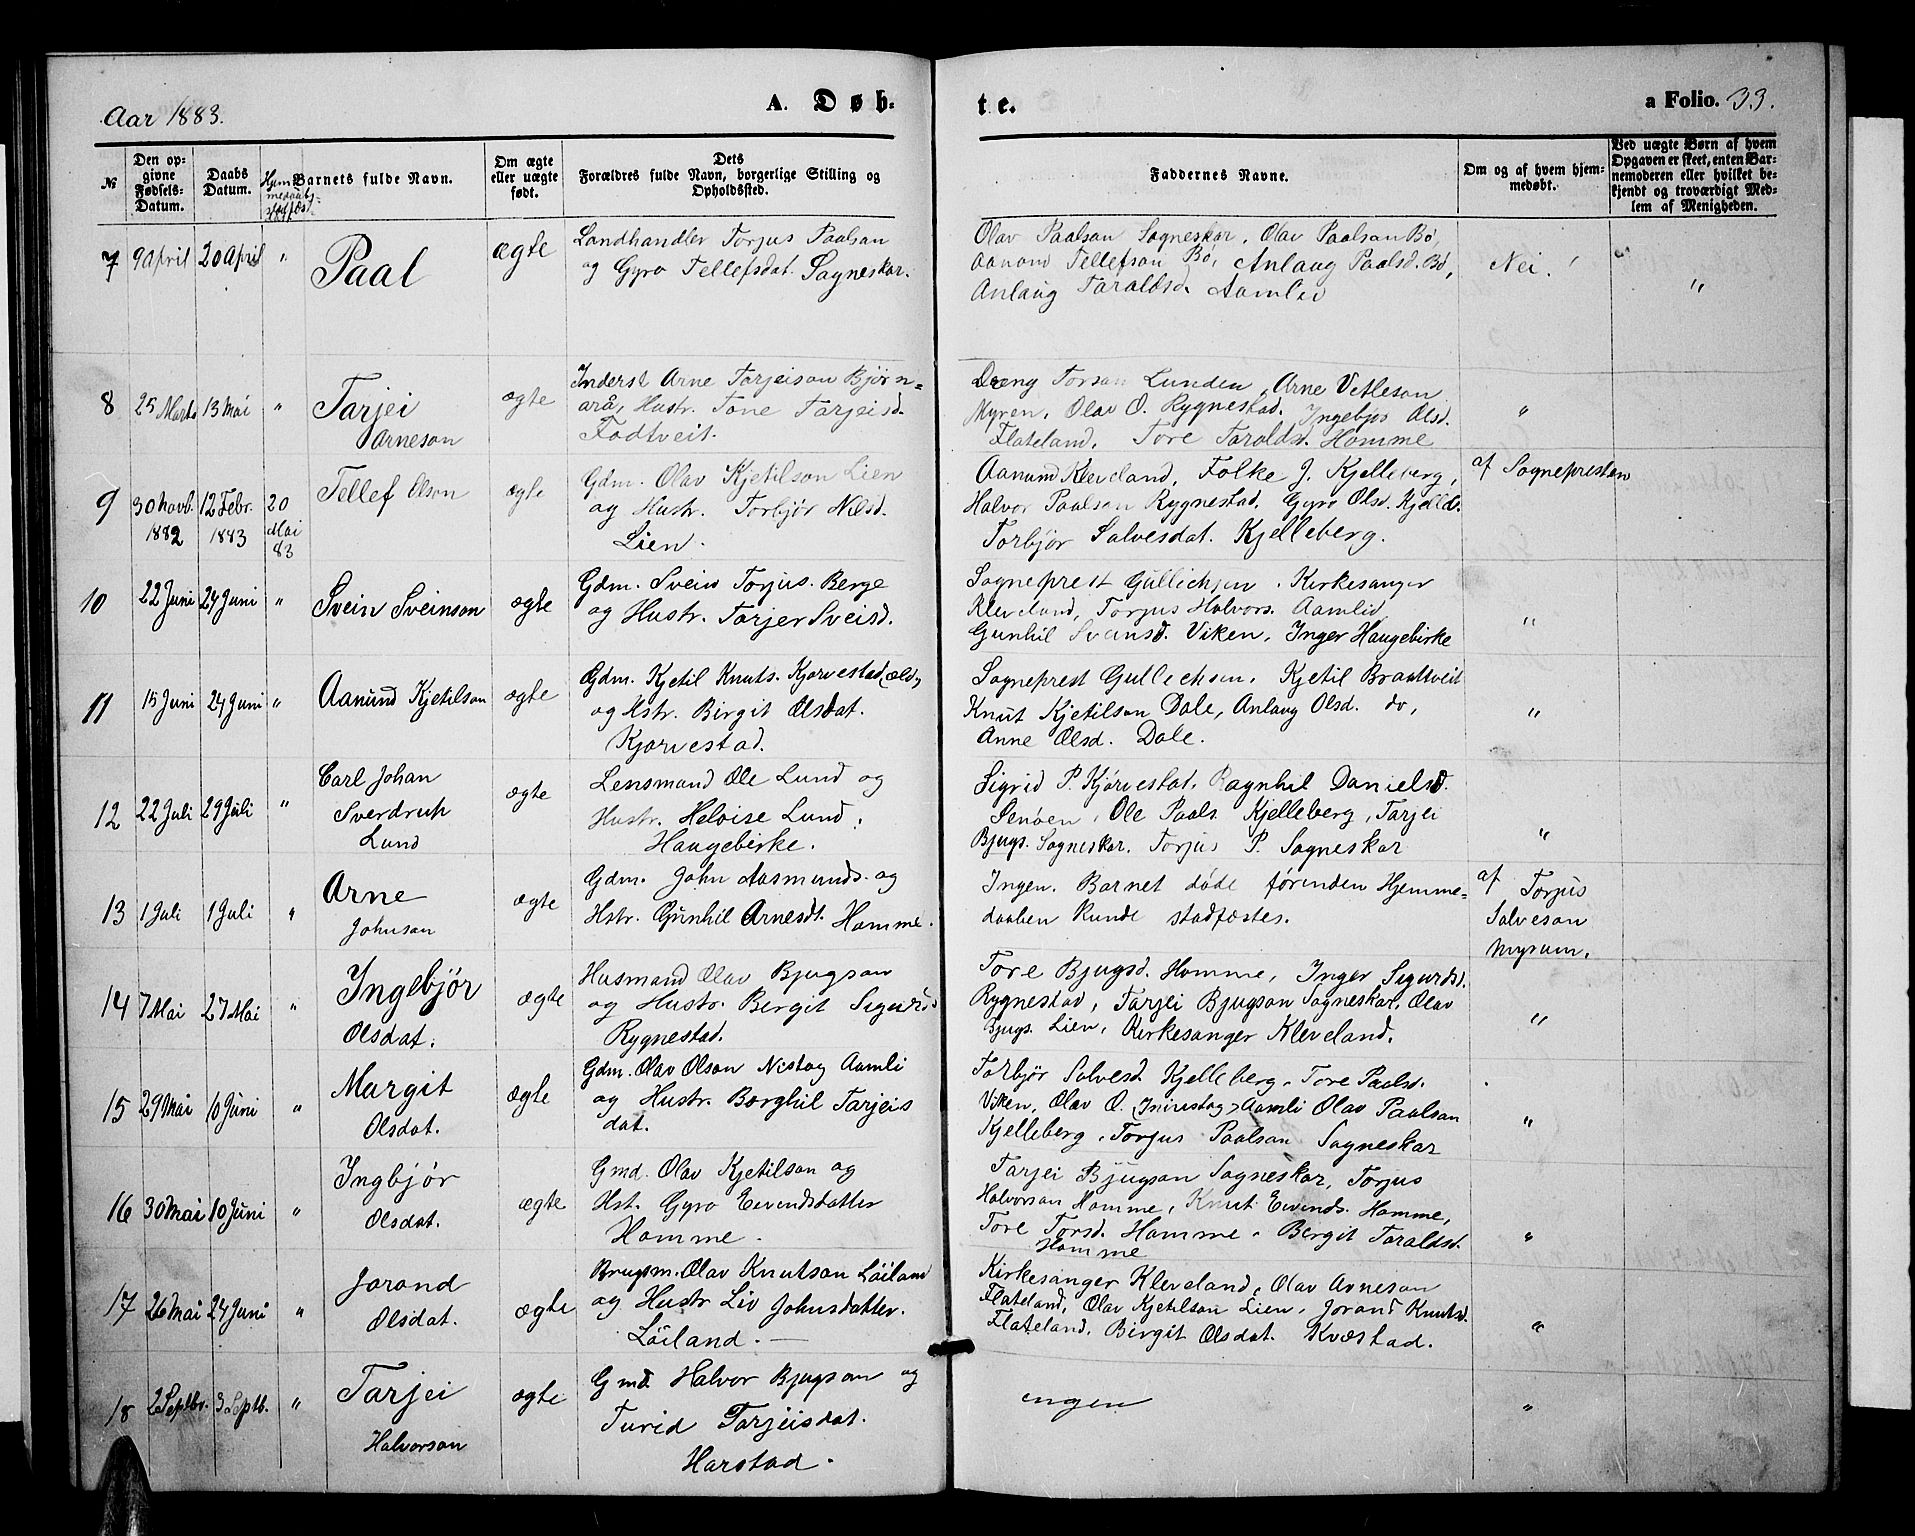 Aar 1883.
A. Døb-
te.
a Folio. 33.
№
Den op-
givne
Fødsels-
Datum.
Daabs
Datum.
Barnets fulde Navn.
Om ægte
eller uægte
født.
Dets
Forældres fulde Navn, borgerlige Stilling og
Opholdssted.
Faddernes Navne.
Om og af hvem hjem-
medøbt.
Ved uægte Børn af hvem
Opgaven er skeet, enten Bar-
nemoderen eller hvilket be-
kjendt og troværdigt Med-
lem af Menigheden.
7 9 April 20 April " Paal ægte
Landhandler Torjus Paalsan
og Gyro Tellefsdat. Sagneskar.
Olav Paalsan Sagneskar, Olav Paalsan Bø,
Aanond Tellefsan Bø, Anlaug Paalsd. Bø,
Anlaug Taraldsd. Aamlid
Nei.
"
8 25 Marts 13 Mai " Tarjei
Arneson
ægte
Inderst Arne Tarjeison Bjørn-
arå, Hustr. Tone Tarjeisd.
Fodtveit.
Dreng Torsan Lunden, Arne Vetleson
Myren, Olav O. Rygnestad. Ingebjør Olsd.
Flateland, Tore Taraldsd. Homme
"
9 30 Novb. 12 Febr. 20
1882 1883 Mai
83
Tellef Olson ægte
Gdm. Olav Kjetilson Lien
og Hustr. Torbjør Nilsd.
Lien.
Aanund Kleveland, Folke J. Kjelleberg,
Halvor Paalson Rygnestad. Gyro Olsd. Kjelleb.
Torbjør Salvesdat. Kjelleberg.
af Sognepresten
10 22 Juni 24 Juni " Svein Sveinson ægte
Gdm. Svein Torjus. Berge
og Hustr. Tarjer Sveisd.
Sogneprest Gullichsen. Kirkesanger
Kleveland, Torjus Halvors. Aamlid
Gunhil Svensd. Viken, Inger Haugebirke
"
11 15 Juni 24 Juni " Aanund Kjetilson ægte
Gdm. Kjetil Knuts. Kjørvestad (æld,
og Hstr. Birgit Olsdat.
Kjørvestad.
Sogneprest Gullichsen, Kjetil Braatveit
Knut Kjetilson Dale, Anlaug Olsd. do,
Anne Olsd. Dale.
"
12 22 Juli 29 Juli " Carl Johan
Sverdrup
Lund
ægte
Lensmand Ole Lund og
Hustr. Heloise Lund,
Haugebirke.
Sigrid P. Kjørvestat. Ragnhil Danielsd.
Senøen, Ole Paals. Kjelleberg, Tarjei
Bjugs. Sagneskar. Torjus P. Sagneskar
"
13 1 Juli 1 Juli " Arne
Johnson
ægte
Gdm. John Aasmunds. og
Hstr. Gunhil Arnesdt. Homme.
Ingen. Barnet døde førinden Hjemme-
daaben kunde stadfæstes.
af Torjus
Salveson
Mysum.
14 7 Mai 27 Mai " Ingebjør
Olsdat.
ægte
Husmand Olav Bjugson
og Hustr. Bergit Sigurds
Rygnestad.
Tore Bjugsd. Homme, Inger Sigurdsd.
Rygnestad, Tarjei Bjugson Sagneskar, Olav
Bjugs. Lien, Kirkesanger Kleveland.
"
15 29 Mai 10 Juni " Margit
Olsdat.
ægte
Gdm. Olav Olson Nistog Aamli
og Hustr. Borghil Tarjeis
dat.
Torbjør Salvesd. Kjelleberg. Tore Paalsd.
Viken, Olav O. Aamli Olav Paalson
Kjelleberg, Torjus Paalson Sagneskar
"
16 30 Mai 10 Juni " Ingbjør
Olsdat.
ægte
Gmd. Olav Kjetilson og
Hst. Gyro Eivendsdatter
Homme.
Tarjei Bjugson Sagneskar, Torjus
Halvorsan Homme, Knut Eivinds. Homme,
Tore Torsd. Homme. Bergit Taraldsd.
Homme
"
17 26 Mai 24 Juni " Jorond
Olsdat.
ægte
Brugsm. Olav Knutson Løiland
og Hustr Liv Johnsdatter.
Løiland.
Kirkesanger Kleveland, Olav Arneson
Flateland, Olav Kjetilson Lien. Jorand Knutsd.
Flateland, Birgit Olsdat. Kvæstad.
"
18 2 Septbr. 3 Septb. " Tarjei
Halvorson
ægte
Gmd. Halvor Bjugson og
Turid Tarjeisdat.
Harstad.
ingen
"